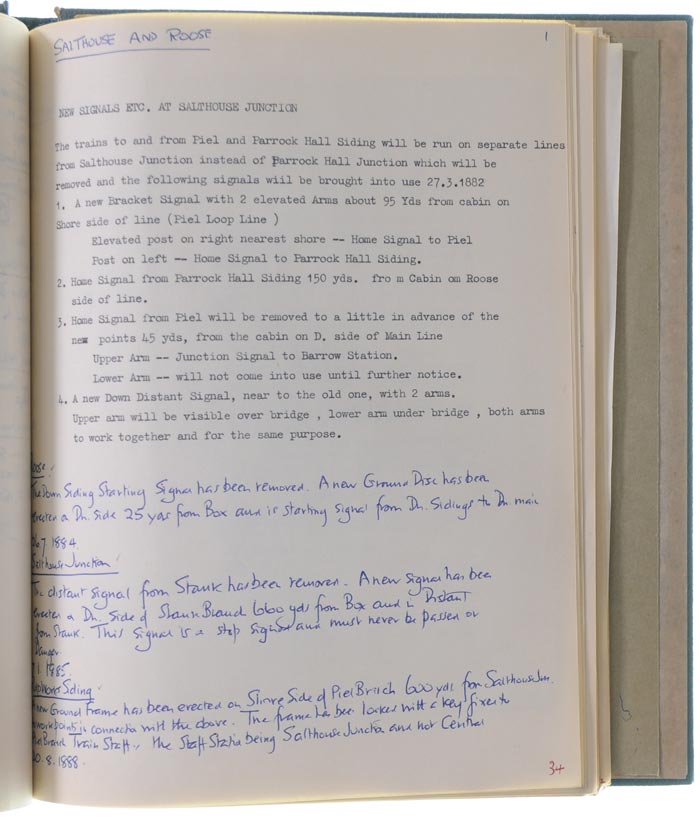 SALTHOUSE AND ROOSE
1
NEW SIGNALS ETC. AT SALTHOUSE JUNCTION
The trains to and from Piel and Parrock Hall Siding will be run on separate lines
from Salthouse Junction instead of Parrock Hall Junction which will be
removed and the following signals wiil be brought into use 27.3.1882
1. A new Bracket Signal with 2 elevated Arms about 95 Yds from cabin on
Shore side of line (Piel Loop Line )
Elevated post on right nearest shore -- Home Signal to Piel
Post on left -- Home Signal to Parrock Hall Siding.
2. Home Signal from Parrock Hall Siding 150 yds. fro m Cabin om Roose
side of line.
3. Home Signal from Piel will be removed to a little in advance of the
new points 45 yds, from the cabin on D. side of Main Line
Upper Arm -- Junction Signal to Barrow Station.
Lower Arm -- will not come into use until further notice.
4. A new Down Distant Signal, near to the old one, with 2 arms.
Upper arm will be visible over bridge , lower arm under bridge , both arms
to work together and for the same purpose.
The Down Siding Starting Signal has been removed. A new Ground Disc has been
erected on Dn. Side 25 yds from Box and is starting signal from Dn. Sidings to Dn main
7 1884.
Salthouse Junction
The distant signal from Stank has been removed. A new signal has been
erected on Dn. Side of Stank Branch 600 yds from Box and is Distant
from Stank. This Signal is a stop signal and must never be passed at
Danger
1. 1885.
Siding
new Ground Frame has been erected on Shore Side of Piel Branch 600 yds from Salthouse Jun.
to work points in connection with the above. The frame has been locked with a key fixed to
Piel Branch Train Staff, the Staff Station being Salthouse Junction and not Central
20.8.1888.
34